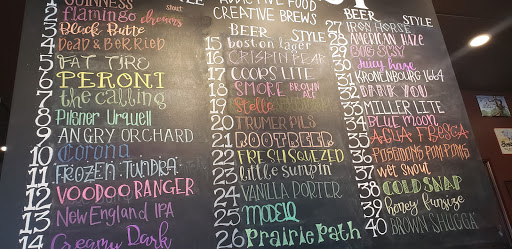 ADDICTIVE FOOD
CREATIVE BREWS
1 GUINNESS stout
2 flamingo dreams
3 Black Butte
4 Dead & Berried
5 FAT TIRE
6 PERONI
7 the calling
8 Pilsner Urquell
9 ANGRY ORCHARD
10 Corona
11 FROZEN TUNDRA
12 VOODOO RANGER
13 New England IPA
14 Creamy Dark
BEER STYLE
15 boston lager
16 CRISPIN PEAR
17 COORS LITE
18 SMORE BROWN ALE
19 Stella
20 TRUMER PILS
21 ROOTBEER
22 FRESH SQUEZED
23 little sumpin'
24 VANILLA PORTER
25 MODELO
26 Prairie Path
BEER STYLE
27 IRON HORSE
28 AMERICAN HAZE
29
30 juicy haze
31 KRONENBOURG 1664
32
33 MILLER LITE
34 BLUE MOON
35 AGUA FRESCA
36 POM POMS
37 Wet Snout
38 COLD SNAP
39 honey funsize
40 BROWN SHUGGA